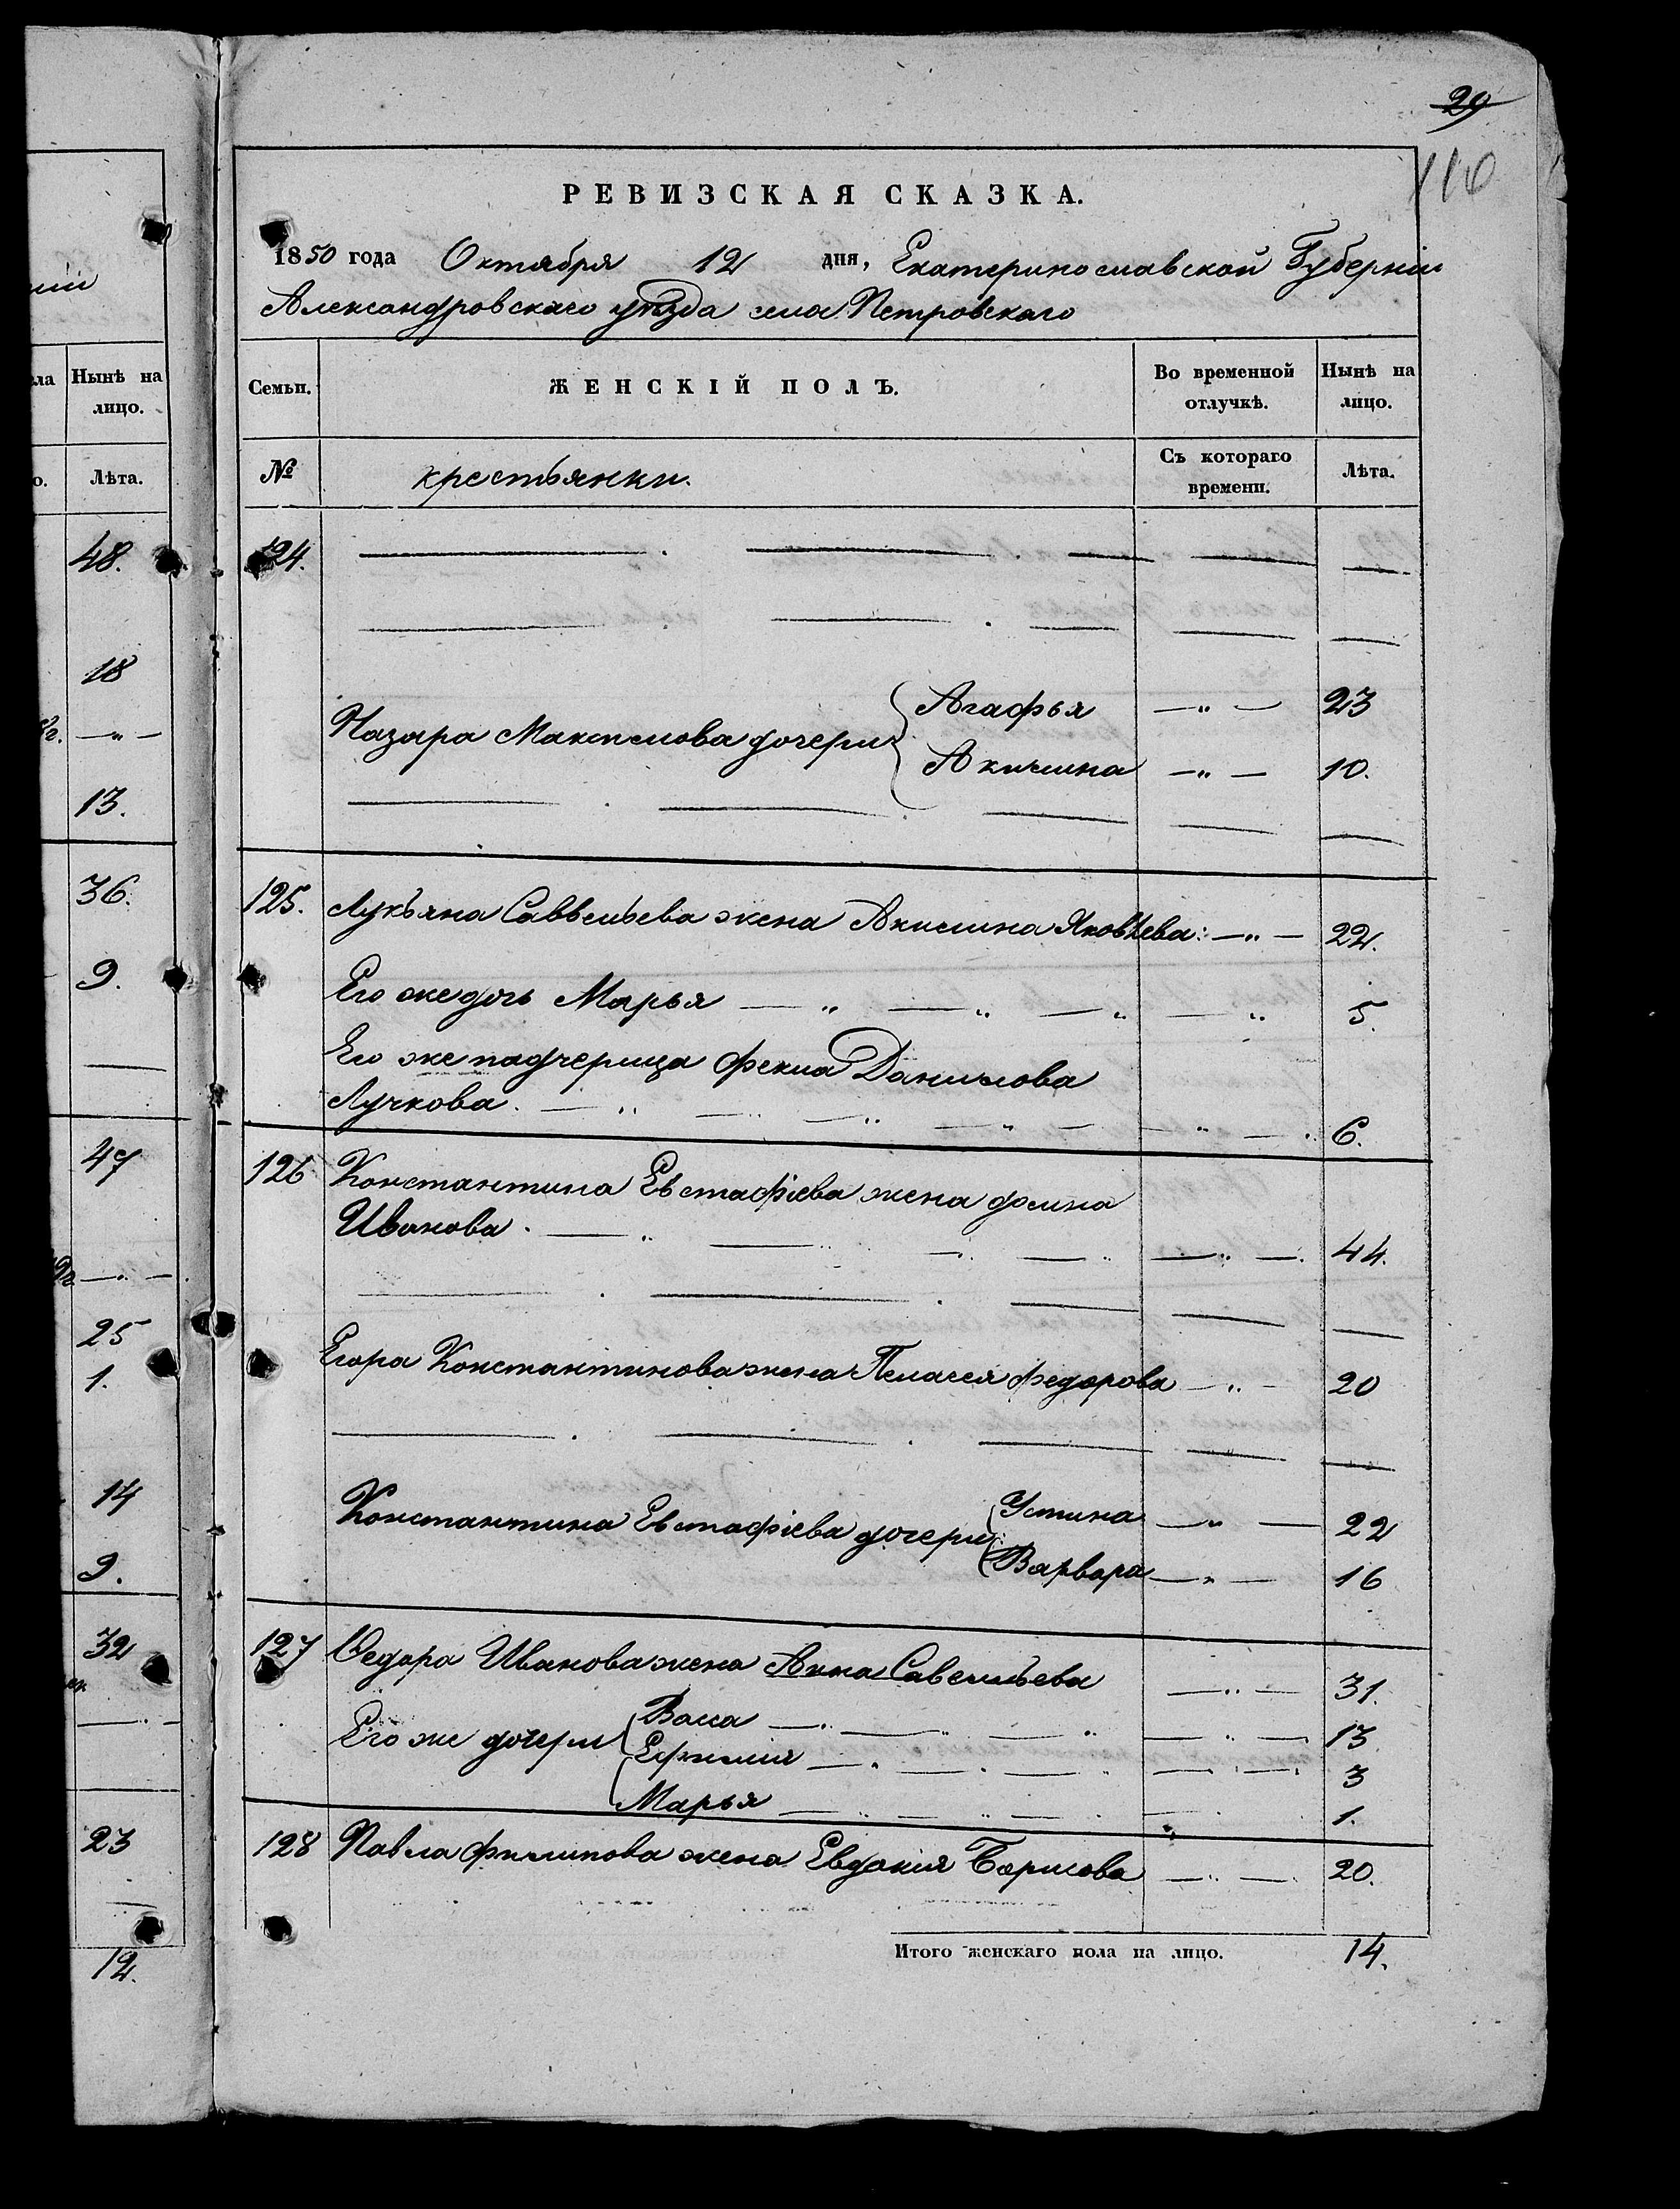 29
110
РЕВИЗСКАЯ СКАЗКА.
1850 года Октября 12 дня, Екатеринославской Губерніи
Александровскаго уѣзда села Петровскаго
Семьи. ЖЕНСКІЙ ПОЛЪ. Во временной отлучкѣ. Нынѣ на лицо.
№ крестьянки. Съ котораго времени. Лѣта.
124.
Назара Максимова дочери Агафья — " — 23
Акилина — " — 10.
125. Лукъяна Саввельева жена Акилина Яковлева: — " — 22.
Его же дочь Марья — " — " — " — " 5.
Его же падчерица Фекла Данилова
Лучкова. — " — " — " — " — " — 6.
126 Константина Евстафіева жена
Иванова. — " — " — " — " — " — 44.
Егора Константинова жена Пелагея Федорова — " — 20
Константина Евстафіева дочери Устина — " — 22
Варвара — " — 16
127 Ѳедора Иванова жена Анна Савельева — " — 31.
Его же дочери Васса — " — " — " — " — 13
Ефимія — " — " — " — " — 3
Марья — " — " — " — 1.
128 Павла Филипова жена Евдокия Борисова — " — 20.
Итого женскаго пола на лицо. 14.
Нынѣ на лицо.
Лѣта.
48.
18
— " —
13.
36.
9.
47
— " —
25
1.
14
9.
32
— " —
23
12.